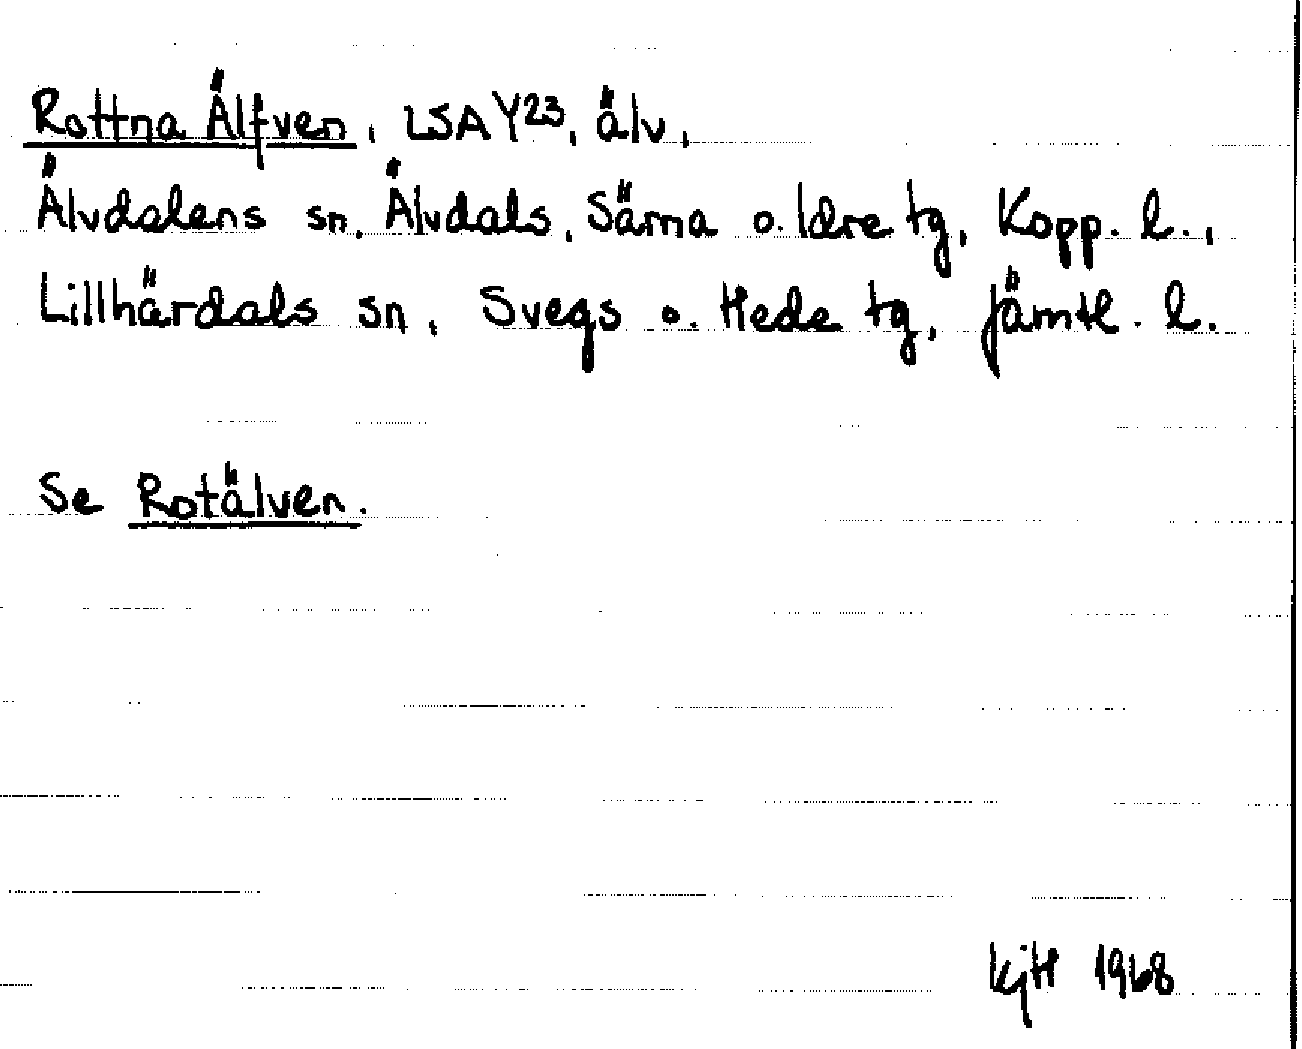 Rottna Älfven, LSA Y23, älv,
Älvdalens sn, Älvdals, Särna o. Idre tg, Kopp. l.,
Lillhärdals sn, Svegs o. Hede tg, Jämtl. l.
Se Rotälven.
KjH 1968